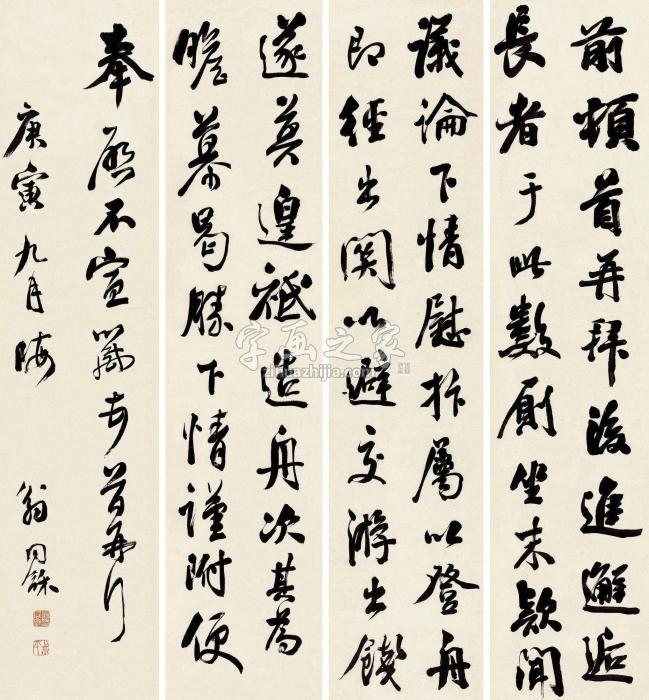 前頓首再拜後進邂逅
長者于此數厠坐末欵聞
議論下情慰抃屬以登舟
即出関以避交游出餞
遂莫遑祗造舟次其為
瞻慕曷勝下情謹附便
奉啓不宣首再
庚寅九月晦
翁同龢
字画之家
zihuazhijia.com